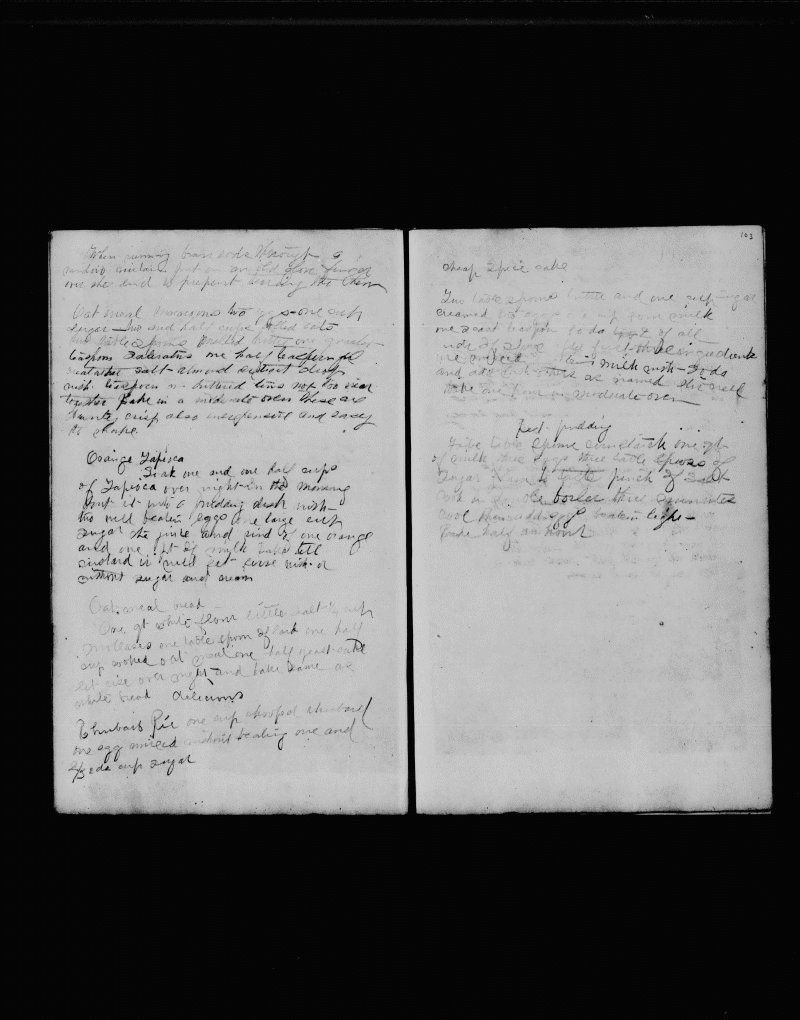 When running brass rods through a
window curtains put on an old glove finger
over the end to prevent
Oat meal macaroons two eggs one cup
sugar and half cups rolled oats
two table spoons melted butter one quarter
teaspoon salaratus one half teaspoonful
salt almond extract drop
with teaspoon on buttered tins not too near
together Bake in a moderate oven these are
dainty crisp also inexpensive and easy
to shape.
Orange Tapioca
Soak one and one half cups
of Tapioca over night in the morning
put it into a pudding dish with
two well beaten eggs one large cup
sugar the juice and rind of one orange
and one pt of milk bake till
custard is well set serve with or
without sugar and cream
Oat meal bread
One qt white flour little salt ½ cup
molasses one table spoon of lard one half
cup cooked oat meal one half yeast cake
let rise over night and bake same as
white bread delicious
Rhubarb Pie one cup chopped rhubarb
one egg mixed without beating one and
cup sugar
103
cheap spice cake
Two table spoons butter and one cup sugar
creamed two eggs ½ cup sour milk
one scant teaspoon soda of all
kinds of spice the ingredients
are mixed milk with soda
and as named stir well
bake one hour in moderate oven
Fest pudding
Five table spoons cornstarch one qt
of milk three eggs three table spoons of
sugar pinch of salt
cook in double boiler three minutes
cool then add eggs beaten light
Bake half an hour